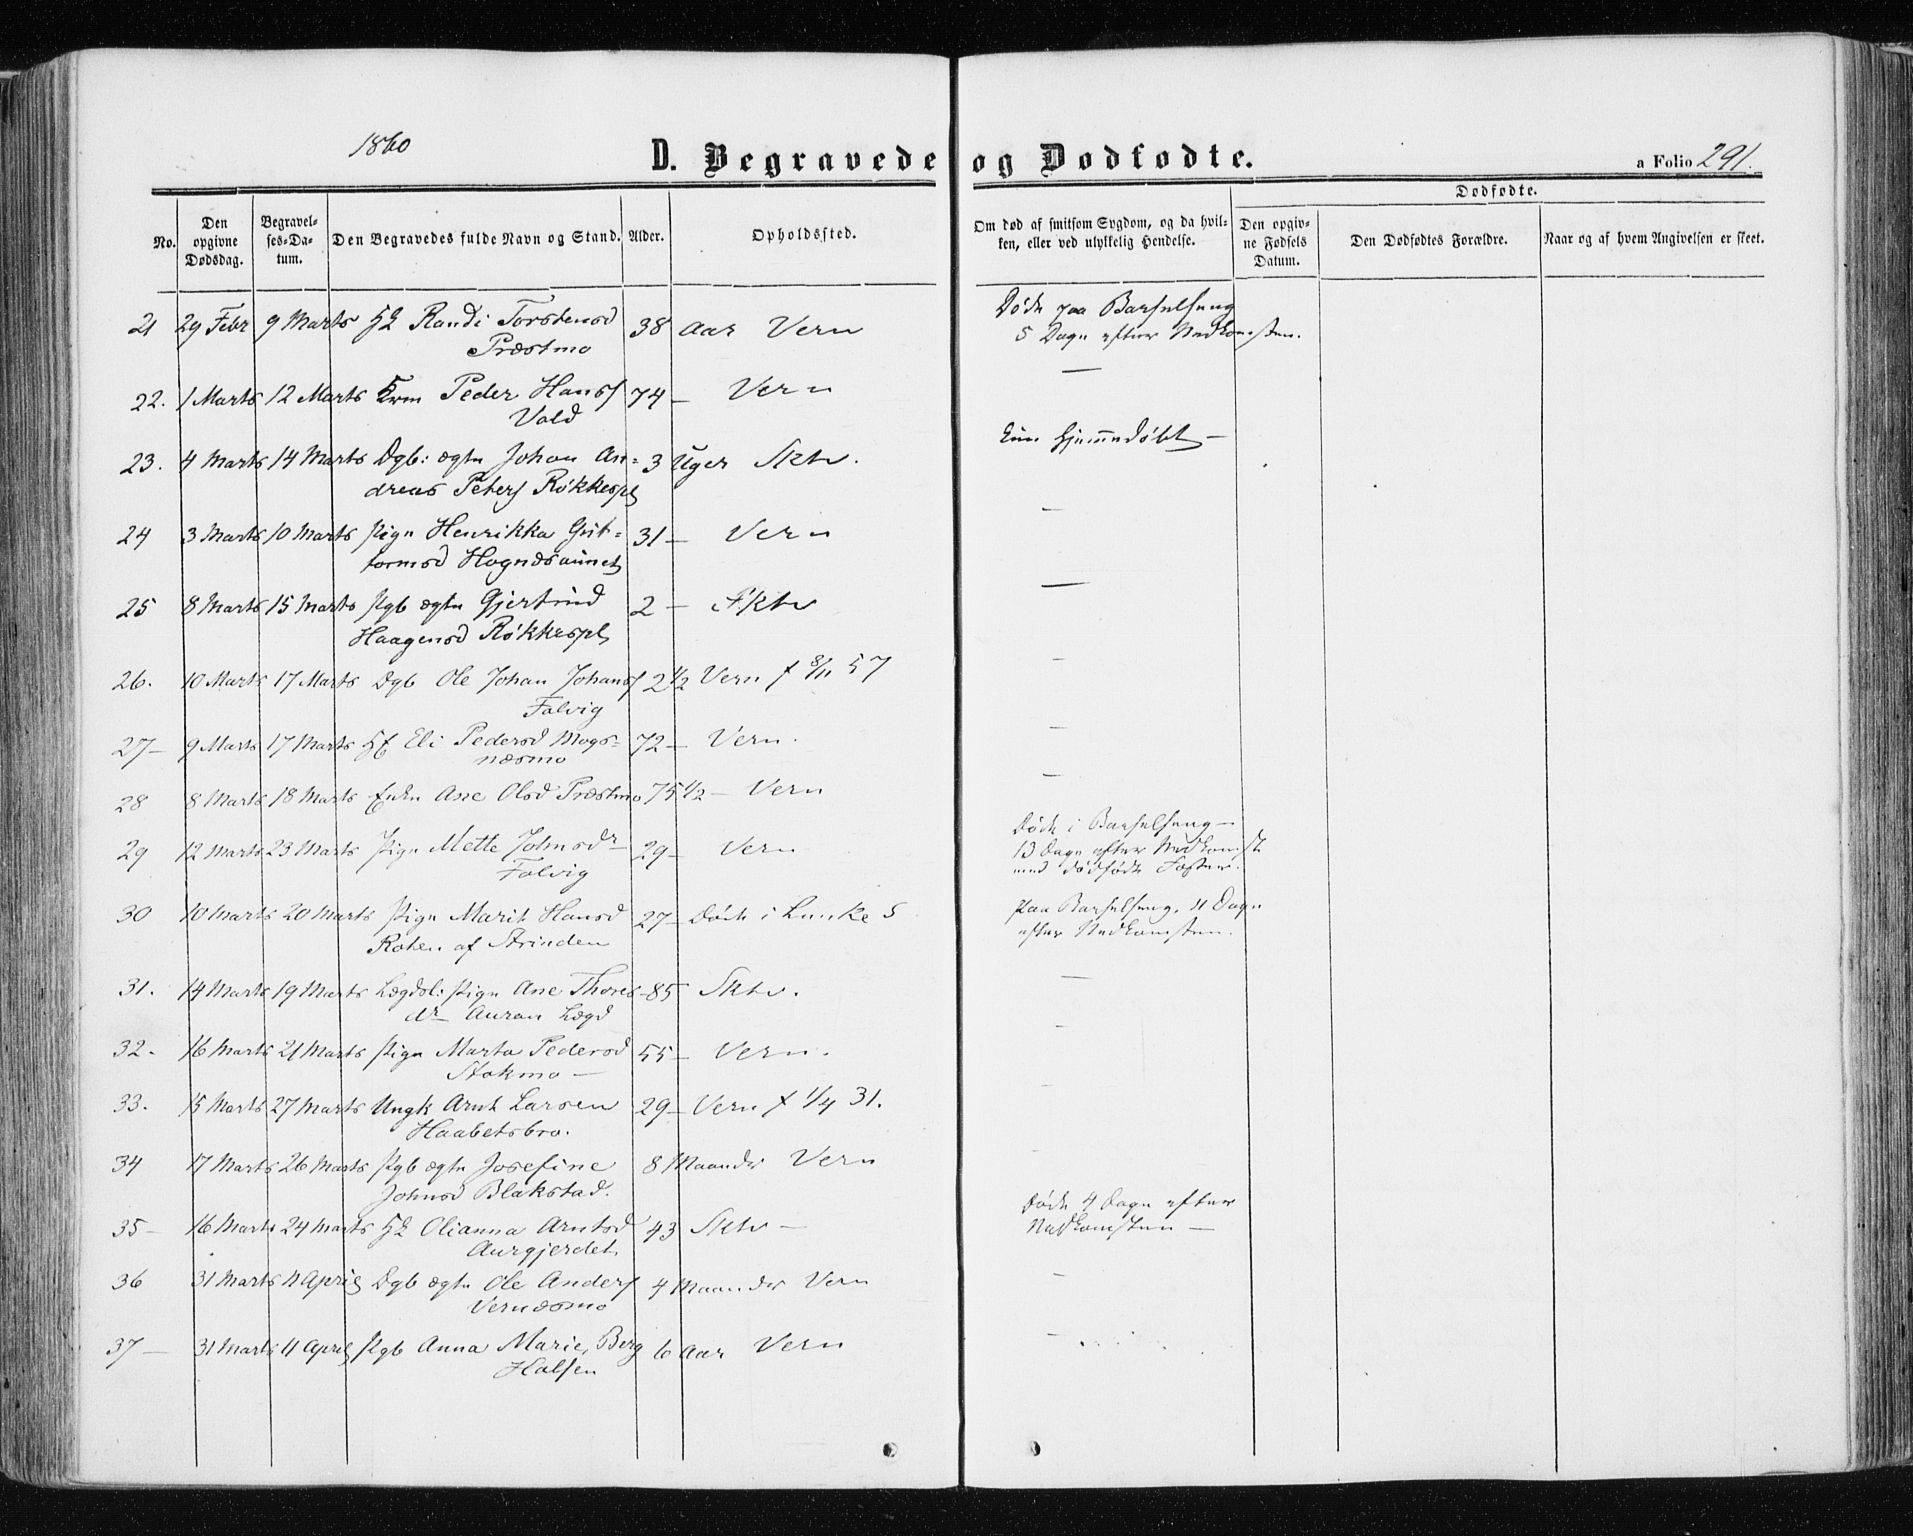 1860
D. Begravede og Dødfødte.
a Folio 291.
No.
Den opgivne Dødsdag.
Begravelses-Datum.
Den Begravedes fulde Navn og Stand.
Alder.
Opholdssted.
Om død af smitsom Sygdom, og da hvilken, eller ved ulykkelig Hendelse.
Dødfødte.
Den opgivne Fødsels Datum.
Den Dødfødtes Forældre.
Naar og af hvem Angivelsen er skeet.
21 29 Febr 9 Marts Randi Torstensd 38 Aar Vern Døde paa Barselseng
Præstmo 5 Dage efter Nedkomsten.
22. 1 Marts 12 Marts Peder Hans 74 — Vern —
Vold
23. 4 Marts 14 Marts Dgb: ægte Johan An= 3 Uger Sktv. kun hjemmedøbt —
dreas Peters Røkkespl
24 3 Marts 10 Marts Pige Henrikka Gut= 31 — Vern —
tormsd Hognæsaunet
25 8 Marts 15 Marts Pgb ægte Gjertrud 2 — Sktv —
Haagensd Røkkespl
26. 10 Marts 17 Marts Dgb Ole Johan Johans 2 1/2 Vern f 8/11 57 —
Folvig
27 — 9 Marts 17 Marts Eli Pedersd Mogs= 72 — Vern. —
næsmo
28 8 Marts 18 Marts Enke Ane Olsd Præstmo 75 1/2 — Vern —
29 12 Marts 23 Marts Pige Mette Johnsdr 29 — Vern Døde i Barselseng —
Folvig 13 Dage efter Nedkomst
med dødfødt Foster.
30 10 Marts 20 Marts Pige Marit Hansd 27 — Døde i Lunke S Paa Barselseng. 11 Dage
Roten af Strinden efter Nedkomsten.
31. 14 Marts 19 Marts Lægdsl: Pige Ane Thores 85 Sktv. —
dr Auran Lægd
32. 16 Marts 21 Marts Pige Marta Pedersd 55 — Vern. —
Stokmo —
33. 15 Marts 27 Marts Ungk Arnt Larsen 29 — Vern f 1/4 31. —
Haabetsbro.
34 17 Marts 26 Marts Pgb ægte Josefine 8 Maander Vern —
Johnsd Blakstad.
35 — 16 Marts 24 Marts Olianna Arntsd 43 Sktv — Døde 4 Dage efter
Aurgjerdet Nedkomsten —
36 31 Marts 11 April Dgb ægte Ole Anders 4 Maander Vern —
Vernæsmo
37 — 31 Marts 11 April Pgb Anna Marie, Berg 6 Aar Vern —
Halsen